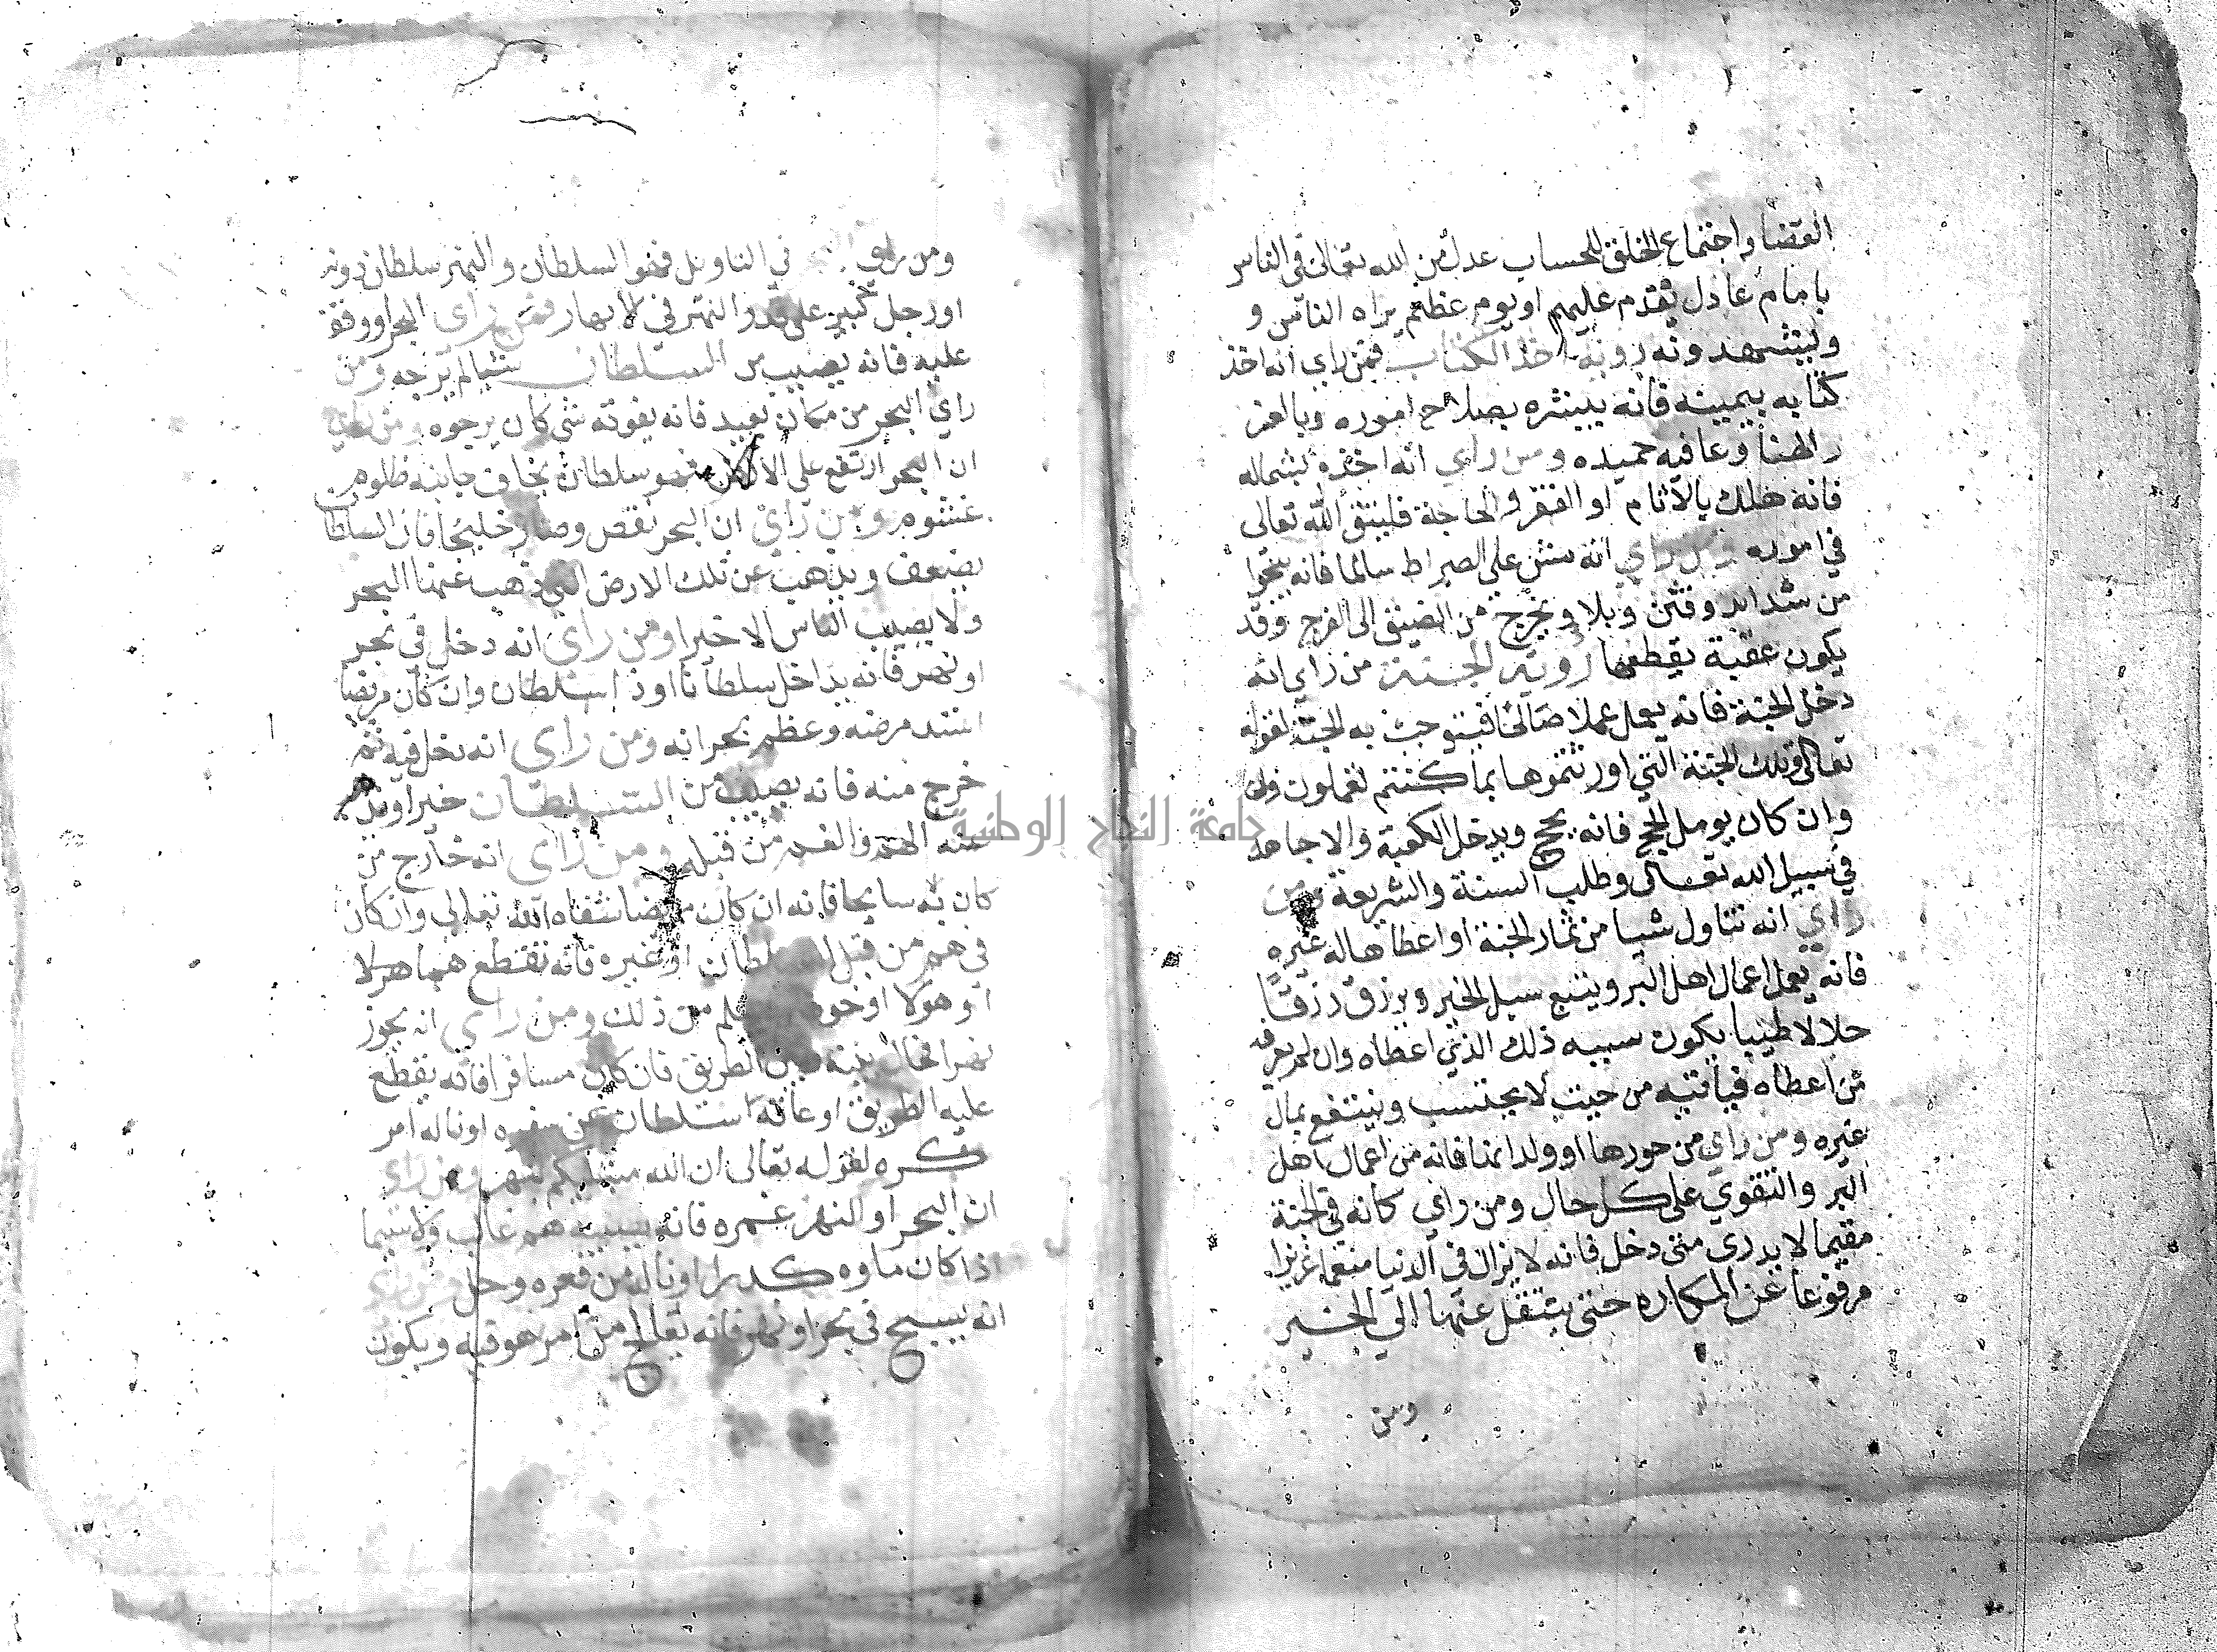 القضا واجتماع الخلق للحساب عدل من الله تعالى في الناس
بامام عادل يقدم عليهم او يوم عظيم يراه الناس و
ويشهدونه روية اخذ الكتاب فمن راي انه اخذ
كتابه بيمينه فانه يبشره بصلاح اموره وبالعز
والهنا وعافيه حميده ومن راي انه اخذه بشماله
فانه هلك بالاثام او الفقر والحاجة فليتق الله تعالى
في اموره ومن راي انه مشى على الصراط سالما فانه ينجوا
من شدايد وفتن وبلا ويخرج من الضيق الى الفرج وقد
يكون عقبة يقطعها روية الجنة من راي انه
دخل الجنة فانه يعمل عملا صالحا فيستوجب به الجنة لقوله
تعالى وتلك الجنة التي اورثتموها بما كنتم تعملون وان
وان كان يومل الحج فانه يحج ويدخل الكعبة والا جاهد
في سبيل الله تعالى وطلب السنة والشريعة ومن
راي انه تناول شيا من ثمار الجنة او اعطاها له غيره
فانه يعمل اعمال اهل البر ويتبع سبل الخير ويرزق رزقا
حلالا طيبا يكون سببه ذلك الذي اعطاه وان لم يعرف
من اعطاه فياتيه من حيث لا يحتسب وينتفع بمال
غيره ومن راي من حورها او ولدانها فانه من اعمال اهل
البر والتقوي على كل حال ومن راي كانه في الجنة
مقيما لا يدري متى دخل فانه لا يزال في الدنيا منعما عزيزا
مرفوعا عن المكاره حتى ينتقل عنها الي الخير
ومن
ومن راي في التاويل فهو السلطان والنهر سلطان دونه
او رجل كبير على قدر النهر في الانهار فمن راي البحر اووقف
عليه فانه يصيب من السلطان شيا لم يرجه ومن
راي البحر من مكان بعيد فانه يفوته شي كان يرجوه ومن راي
ان البحر ارتفع على الارض فهو سلطان يخاف جانبه ظلوم
غشوم ومن راي ان البحر نقص وصار خليجا فان السلطان
يضعف ويذهب عن تلك الارض التي ذهب عنها البحر
ولا يصيب الناس الا خيرا ومن راي انه دخل في بحر
او نهر فانه يداخل سلطانا او ذا سلطان وان كان مريضا
اشتد مرضه وعظم بحرانه ومن راي انه دخل فيه ثم
خرج منه فانه يصيب من السلطان خيرا
عنه الهم والغم من قبله ومن راي انه خارج من
كان به سابحا فانه ان كان مريضا شفاه الله تعالي وان كان
في هم من قبل السلطان او غيره فانه يقطع
من ذلك ومن راي انه يجوز
نهرا فحال بينه وبين الطريق فان كان مسافرا فانه يقطع
عليه الطريق او عاقه سلطان عن سفره او ناله امر
يكره لقوله تعالى ان الله مبتليكم بنهر ومن راي
ان البحر او النهر غمره فانه يصيبه هم غالب ولا سيما
اذا كان ماوه كدرا او ناله من قعره وحل ومن راي
انه يسبح في بحر او نهر فانه يعالج من امر هو فيه ويكون
جامعة النجاح الوطنية